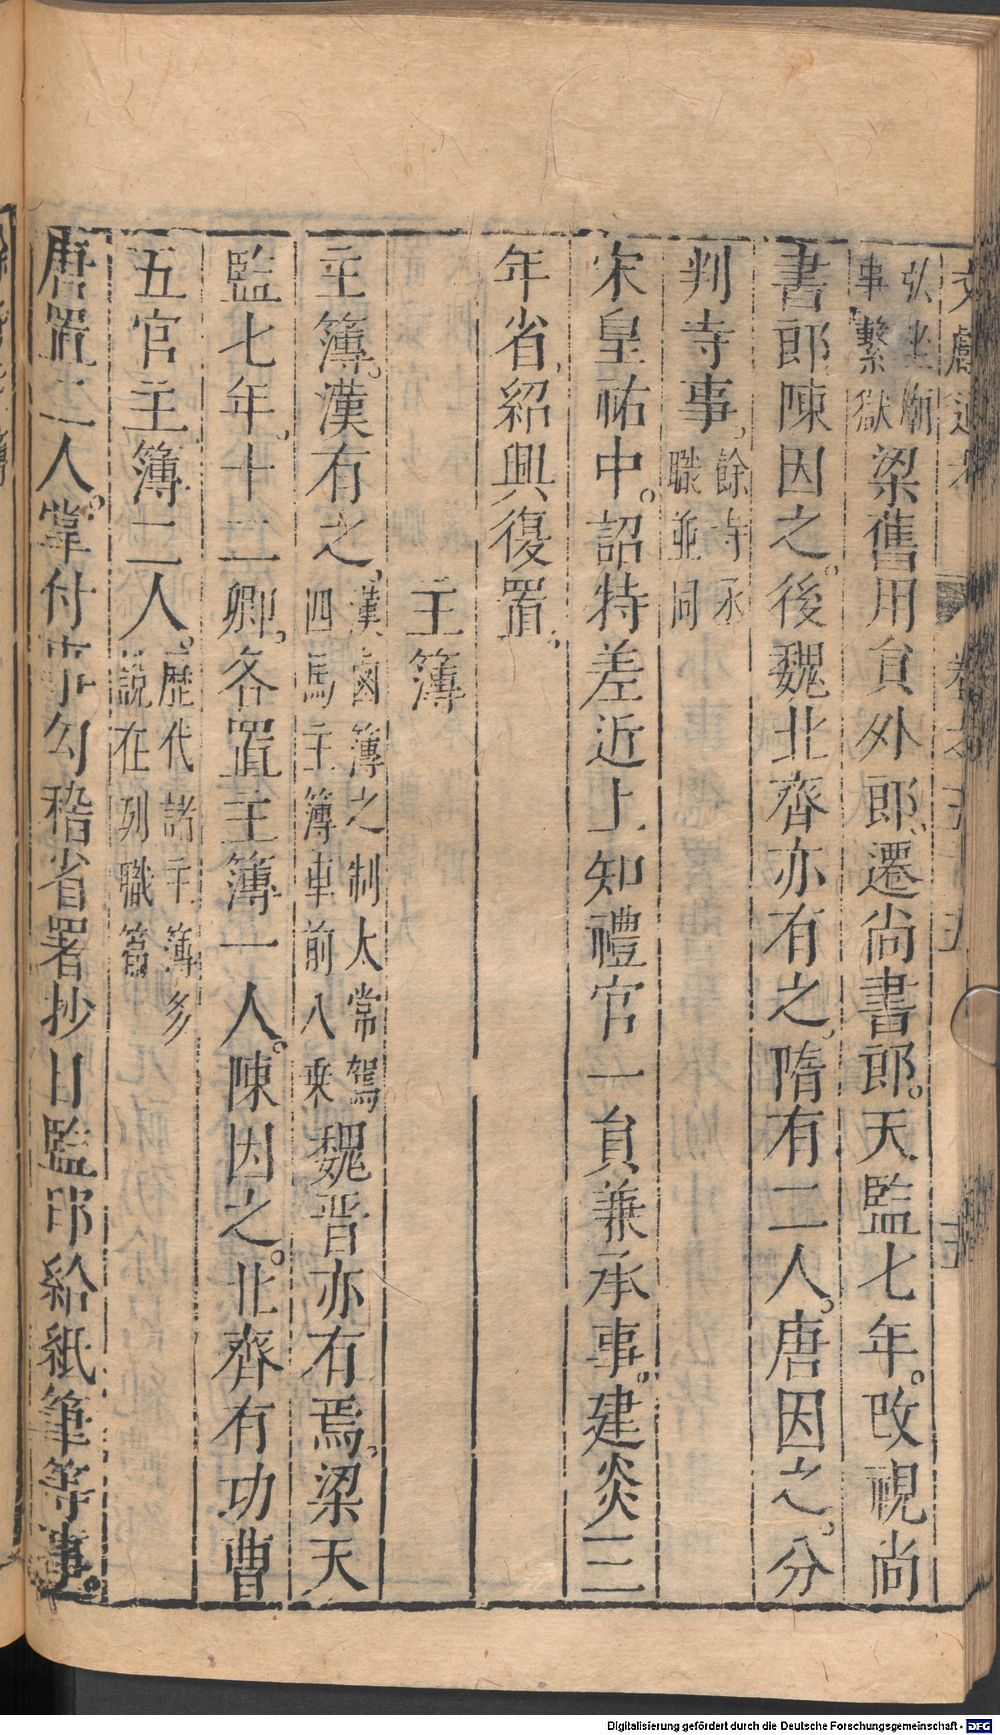 弘坐廟
事繫獄
梁舊用貟外郎、遷尚書郎。天監七年。改視尚
書郎陳因之。後魏北齊亦有之、隋有二人。唐因之。分
判寺事、
餘寺丞
職並同
宋皇祐中。詔特差近上知禮官一貟兼承事。建炎三
年省、紹興復置、
主簿
主簿。漢有之、
漢鹵簿之制大常駕
四馬主簿車前八乗
魏晋亦有焉。梁天
監七年、十二卿。各置主簿一人。陳因之。北齊有功曹
五官主簿二人。
歷代諸主簿多
說在列職篇
唐置二人。掌付事勾稽省署抄目監印給紙筆等事。
Digitalisierung gefördert durch die Deutsche Forschungsgemeinschaft - DFG